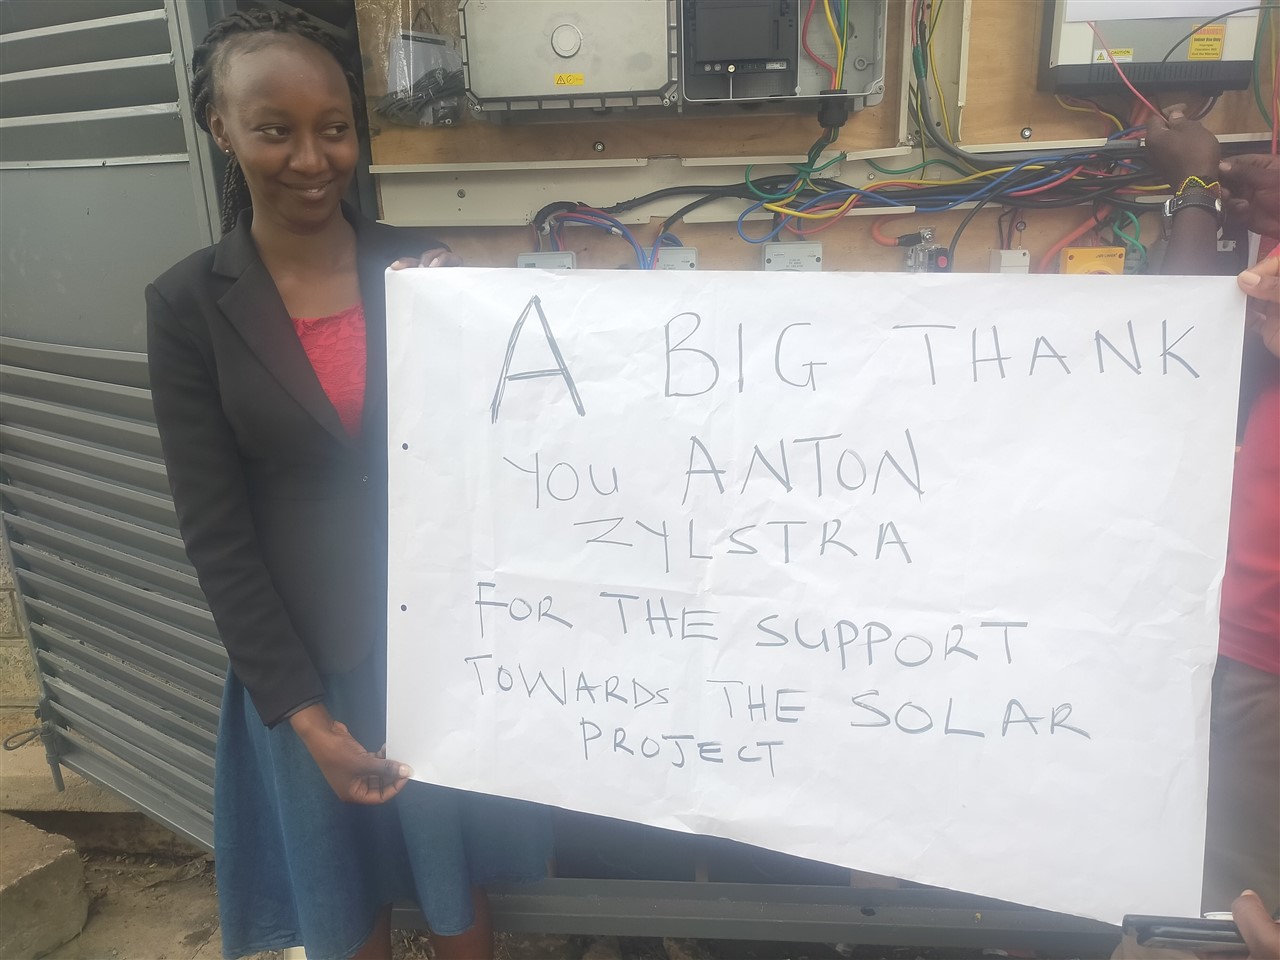 A BIG THANK
YOU ANTON
ZYLSTRA
FOR THE SUPPORT
TOWARDS THE SOLAR
PROJECT
CAUTION
WARNING